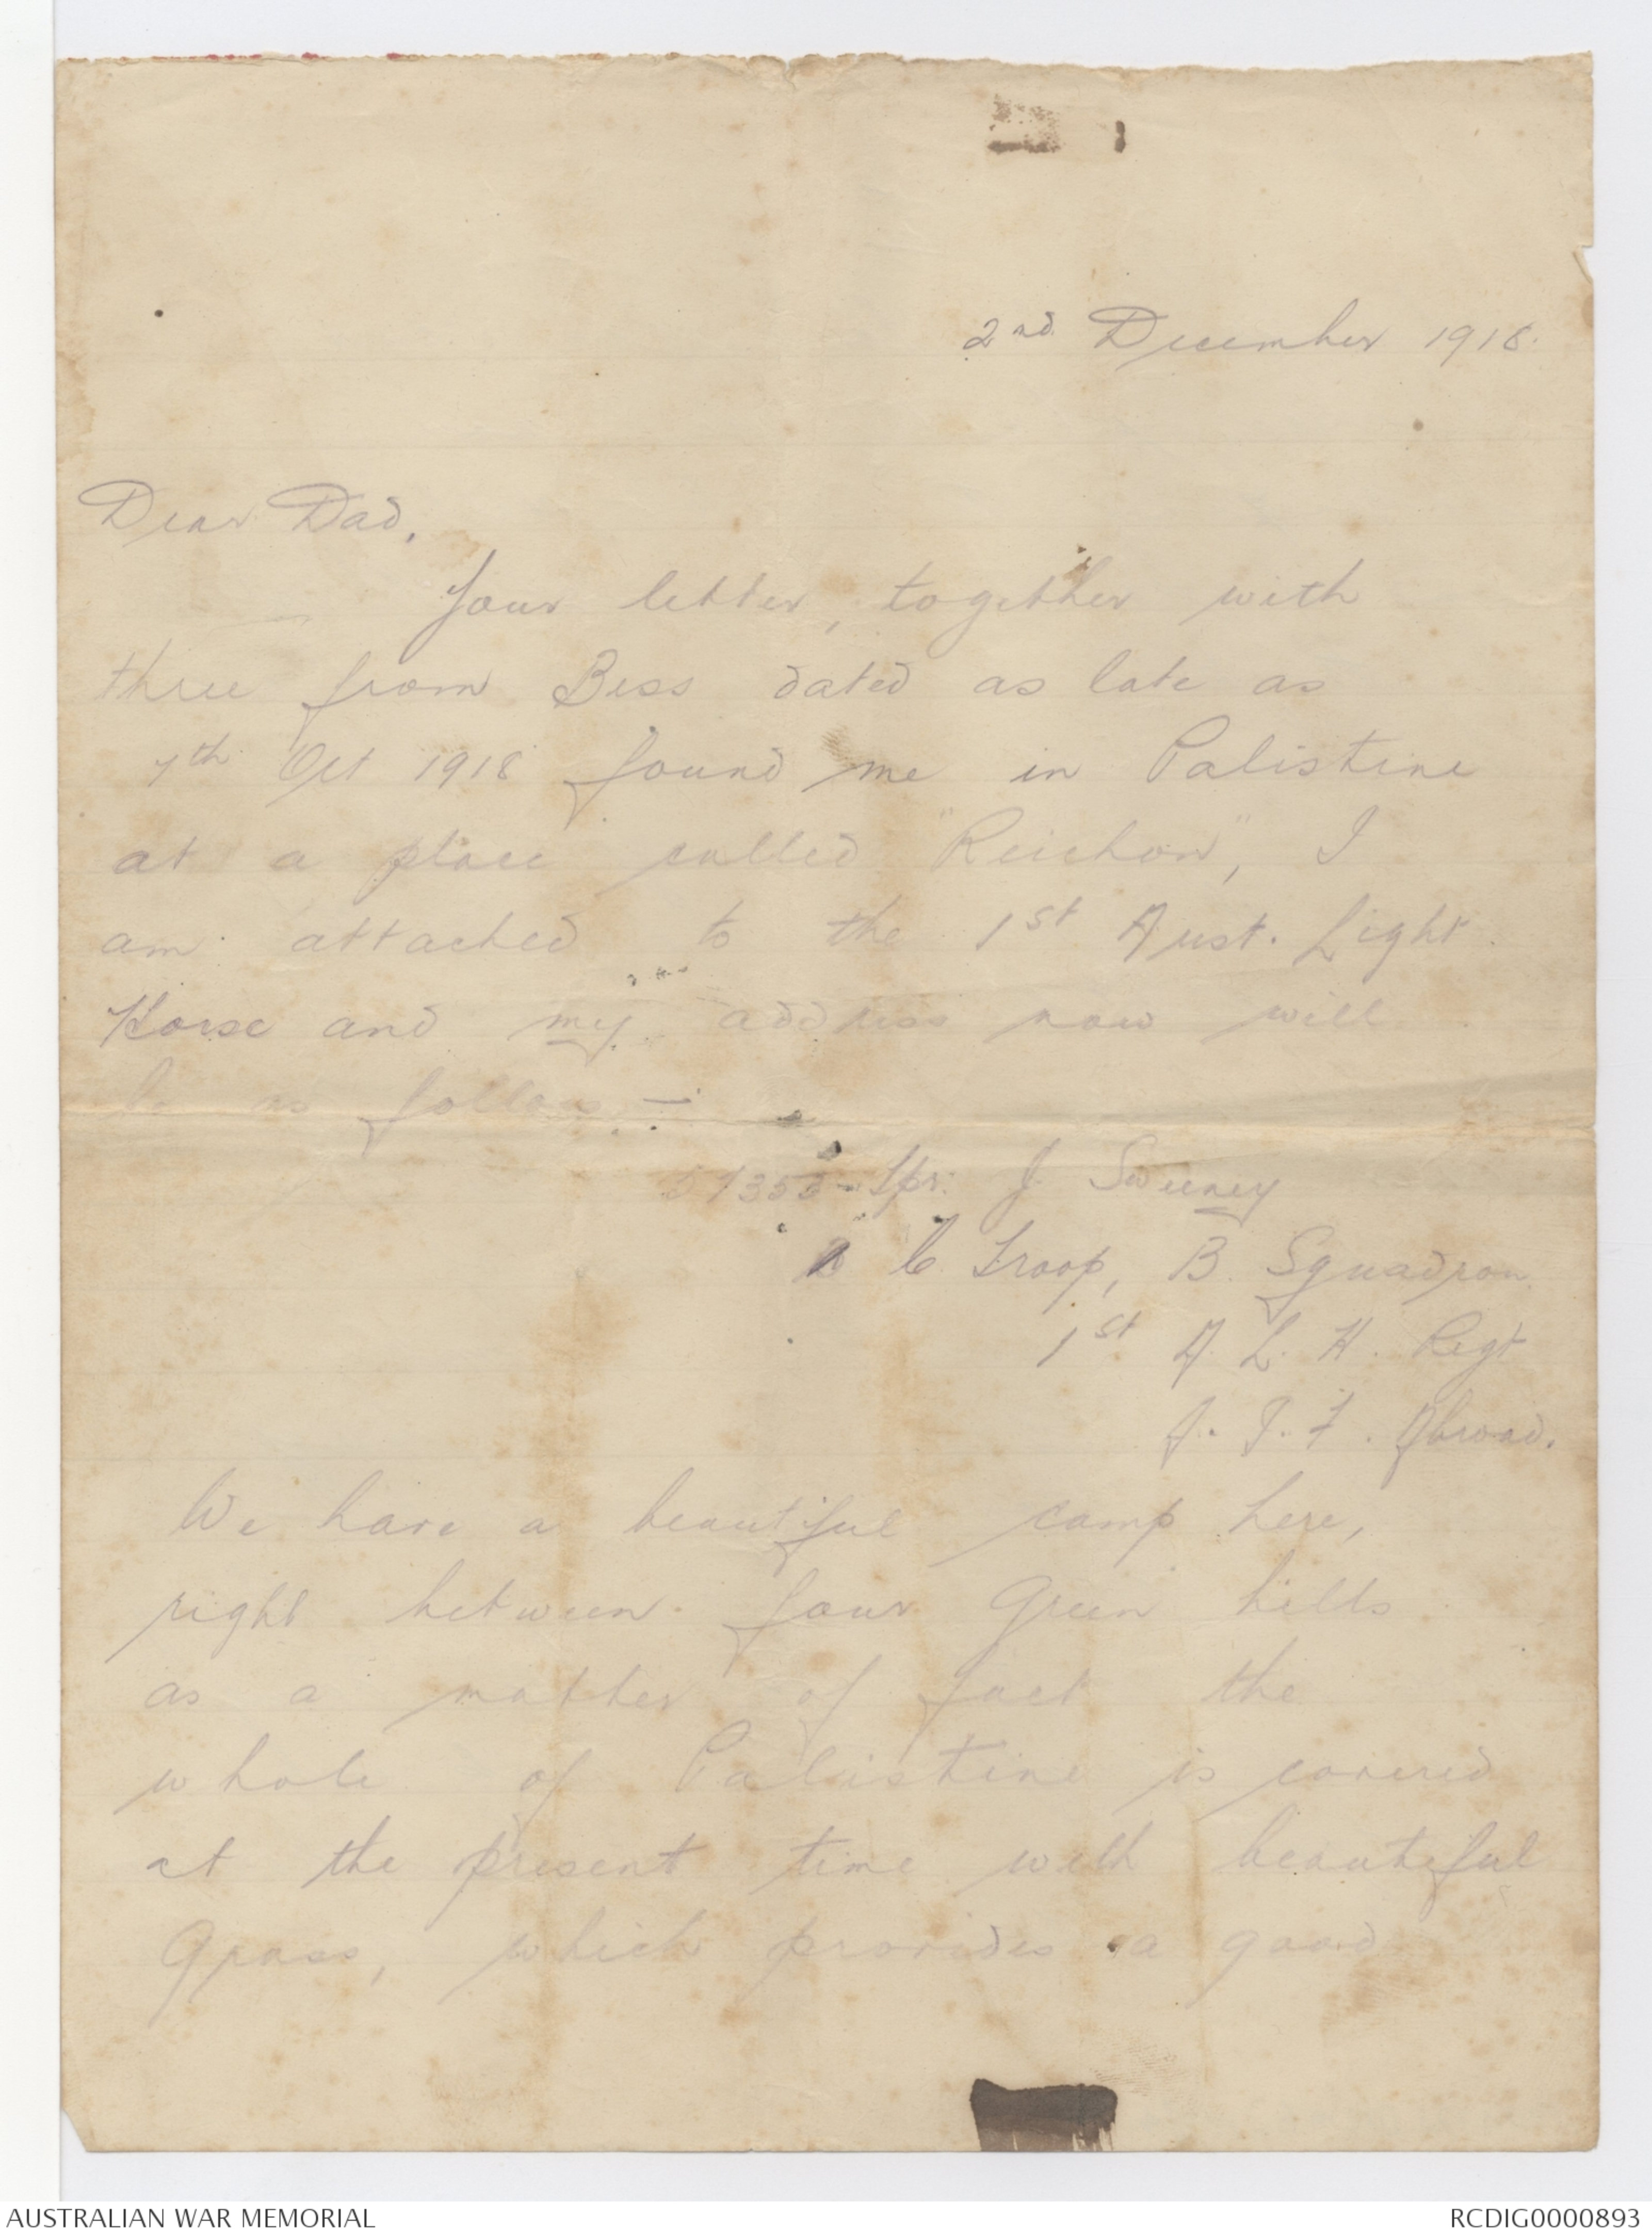 2nd December 1918.
Dear Dad,
Your letter, together with
three from Bess dated as late as
7th Oct 1918 found me in Palistine
at a place called "Reichon", I
am attached to the 1st Aust. Light
Horse and my address now will
be as follows:-
Tpr. J Sweeney
C Troop, B Squadron
1st A. L. H. Regt
A. I. F. Abroad.
We have a beautiful camp here,
right between four green hills
as a matter of fact the
whole of Palistine is covered
at the present time with beautiful
Grass, which provides a good
AUSTRALIAN WAR MEMORIAL
RCDIG0000893